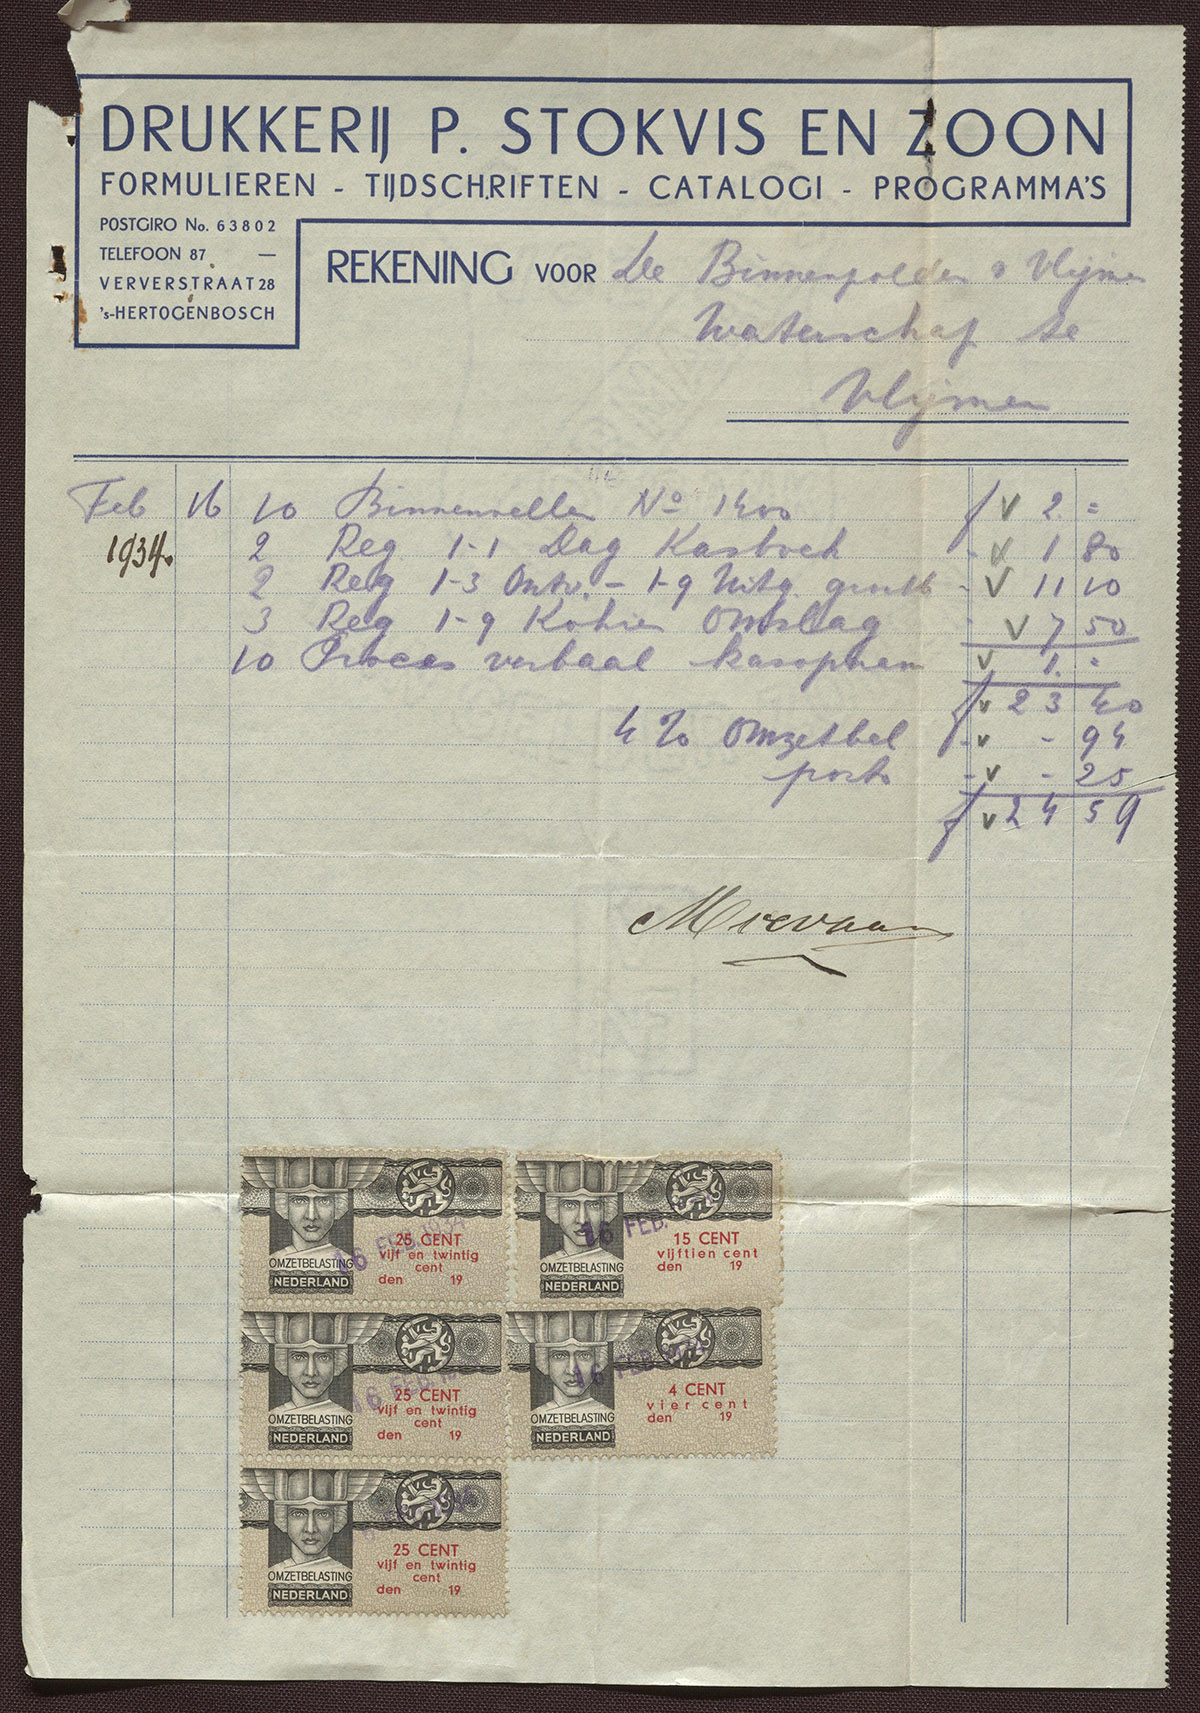 DRUKKERIJ P. STOKVIS EN ZOON
FORMULIEREN - TIJDSCHRIFTEN - CATALOGI - PROGRAMMA'S
POSTGIRO No. 63802
TELEFOON 87 —
VERVERSTRAAT 28
's-HERTOGENBOSCH
REKENING VOOR De Binnenpolder v Vlijmen
Waterschap te
Vlijmen
Feb 16 10 Binnenvellen No 1400 f V 2. =
1934. 2 Reg 1-1 Dag Kasboek - V 1 80
2 Reg 1-3 Ontv. - 1-9 Uitg. - V 11 10
3 Reg 1-9 Kohier Omslag - V 7 50
10 Proces verbaal kasopnem V 1. =
f V 23 40
4 % Omzetbel - V - 94
porto - V - 25
f V 24 59
25 CENT
vijf en twintig
cent
den 19
OMZETBELASTING
NEDERLAND
16 FEB. 1934
15 CENT
vijftien cent
den 19
OMZETBELASTING
NEDERLAND
16 FEB.
25 CENT
vijf en twintig
cent
den 19
OMZETBELASTING
NEDERLAND
16 FEB.
4 CENT
vier cent
den 19
OMZETBELASTING
NEDERLAND
16 FEB.
25 CENT
vijf en twintig
cent
den 19
OMZETBELASTING
NEDERLAND